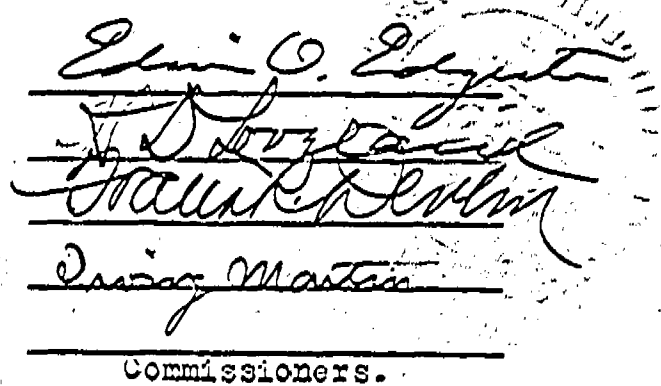 Edwin O. Edgerton
H. D. Loveland
Frank R. Devlin
Irving Martin
Commissioners.